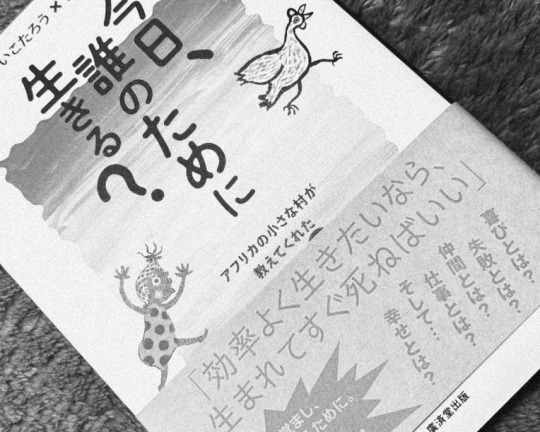 いこたろう×
今日、
誰のために
生きる?
アフリカの小さな村が
教えてくれた
「効率よく生きたいなら、
生まれてすぐ死ねばいい」
喜びとは?
失敗とは?
仲間とは?
仕事とは?
そして…
幸せとは?
ために。
廣済堂出版